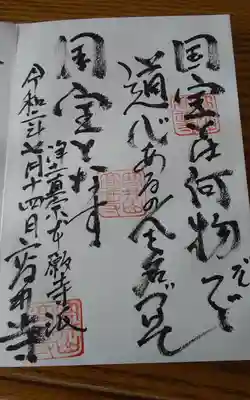 国宝とは何物ぞ
道心あるの人を名て
国宝となす
浄土真宗本願寺派
令和二年七月十四日